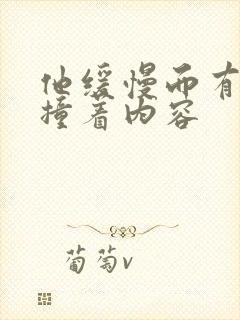 他缓慢而有
撞着内容
葡萄v